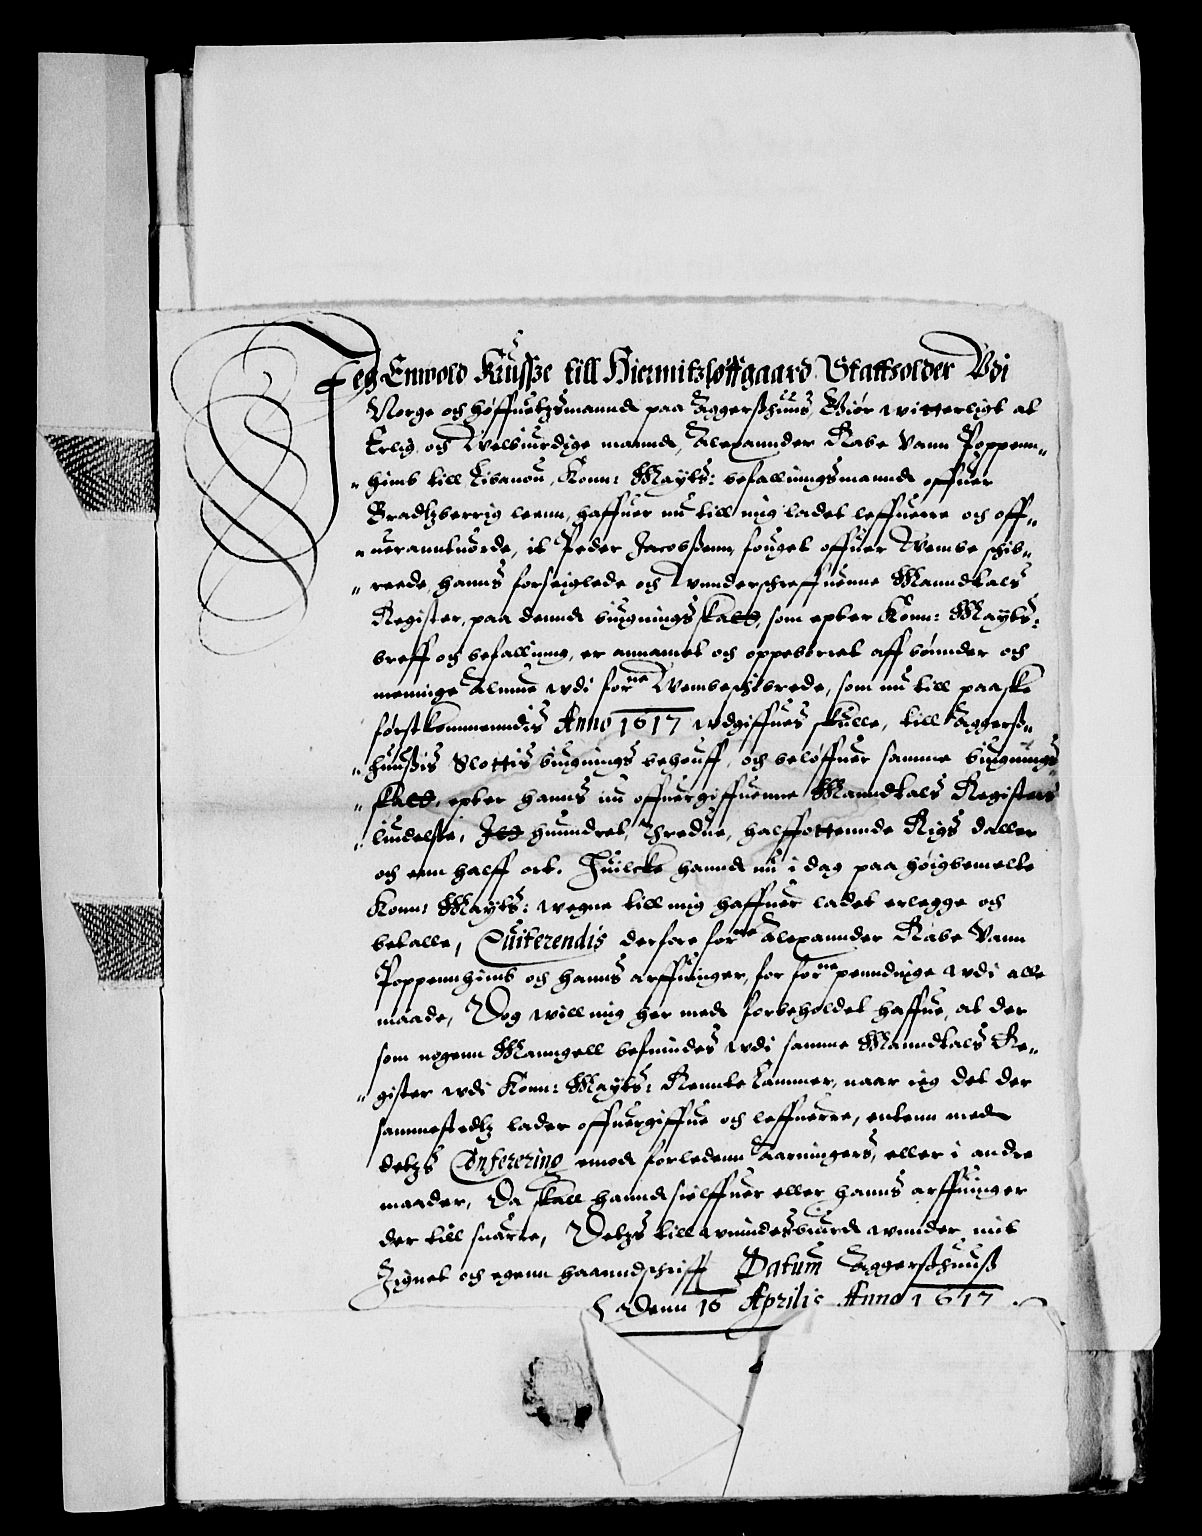 Jeg Enwold Krusße till Hiermitzløffgaard Stattholder Vdi
Norge och høffuetzmannd paa Aggerßhuus, Giør witterligt at
Erlig och Welbiurdige mannd, Alexannder Rabe Vann Poppenn-
himb till Libanon, Konn: Maytts: befallningsmannd offuer
Bradtzberrig leenn, haffuer nu till mig ladet leffuerre och off-
ueranntuorde, it Peder Jacobßenn, fouget offuer Wembe schib-
reede, hanns forseiglede och Wnnderschreffuenne Manndtals
Register, paa dennd bugnings skatt, som epter Konn: Maytts:
breff och befallning, er annamet och oppebørret aff bønnder och
mennige Almue wdi forne Wembeschibrede, som nu till paaske
først kommenndis Anno 1617 wdgiffues skulle, till Aggerß-
huußis Slottis bugnings behouff, och beløffuer samme bugnings
skatt, epter hanns nu offuergiffuenne Manndtals Registers
liudelse, Itt hunndret, Thredue, halffottennde Rigs daller
och enn halff ort. Huilcke hannd nu i dag paa høigbemelte
Konn: Maytts: wegne till mig haffuer ladet erlegge och
betalle, Quiterendis derfore forne Alexannder Rabe Vann
Poppennhimb och hanns arffuinger, for forne penndinge wdi alle
maade, Dog will mig her med forbeholdet haffue, at der
som nogenn Manngell befindes wdi samme Manndtals Re-
gister wdi Konn: Maytts: Rennte Cammer, naar ieg det der
sammestedtz lader offuergiffue och leffuerre, entenn med
detzs Conferering emod forledenn Aaringers, eller i andre
maader, Da skall hannd sielffuer eller hanns arffuinger
der till suarre, Detzs till winndesbiurd wnnder mit
Zignet och egenn haanndschrifft Datum Aggerßhuuß
Denn 16 Aprilis Anno 1617